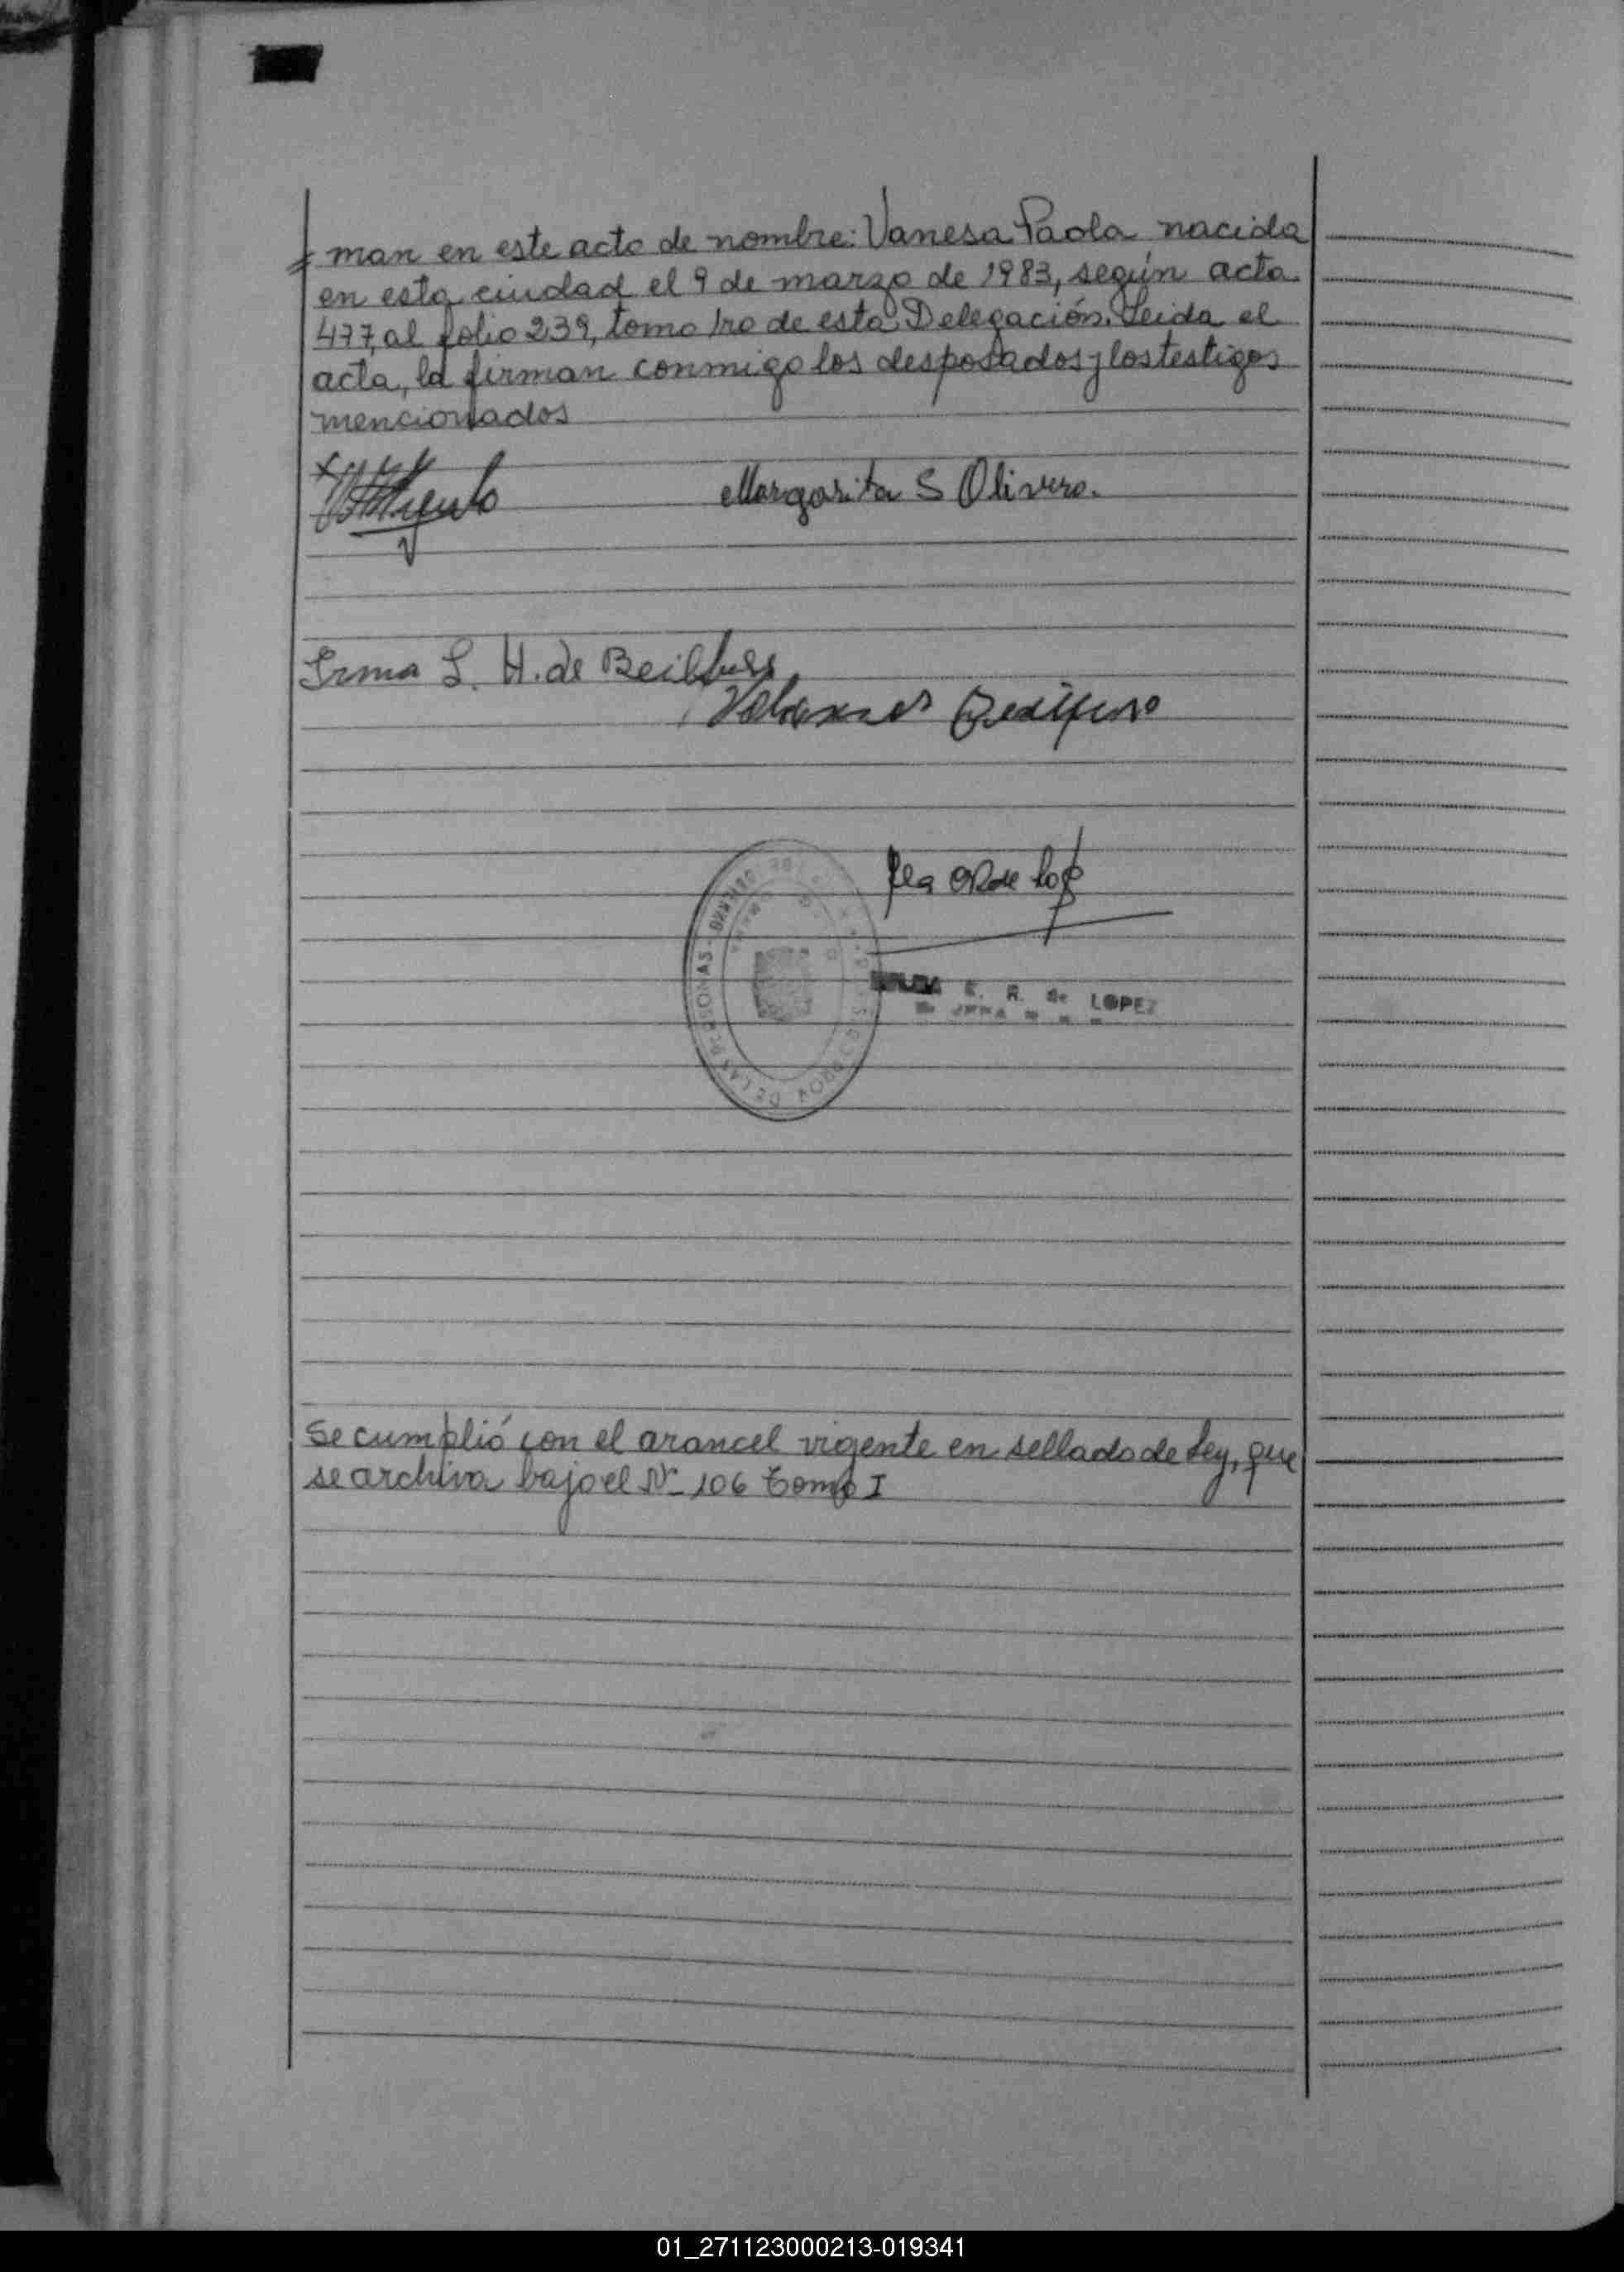 man en este acto de nombre: Vanesa Paola nacida
en esta ciudad el 9 de marzo de 1983, según acta
477, al folio 239, tomo 1ro de esta Delegación. Leida el
acta, la firman conmigo los desposados y los testigos
mencionados
Margarita S Olivero.
Irma L. H. de Beilfuss
DE LAS PERSONAS - PROV
E. R. de LOPEZ
Se cumplió con el arancel vigente en sellado de Ley, que
se archiva bajo el Nº 106 Tomo I
01_271123000213-019341